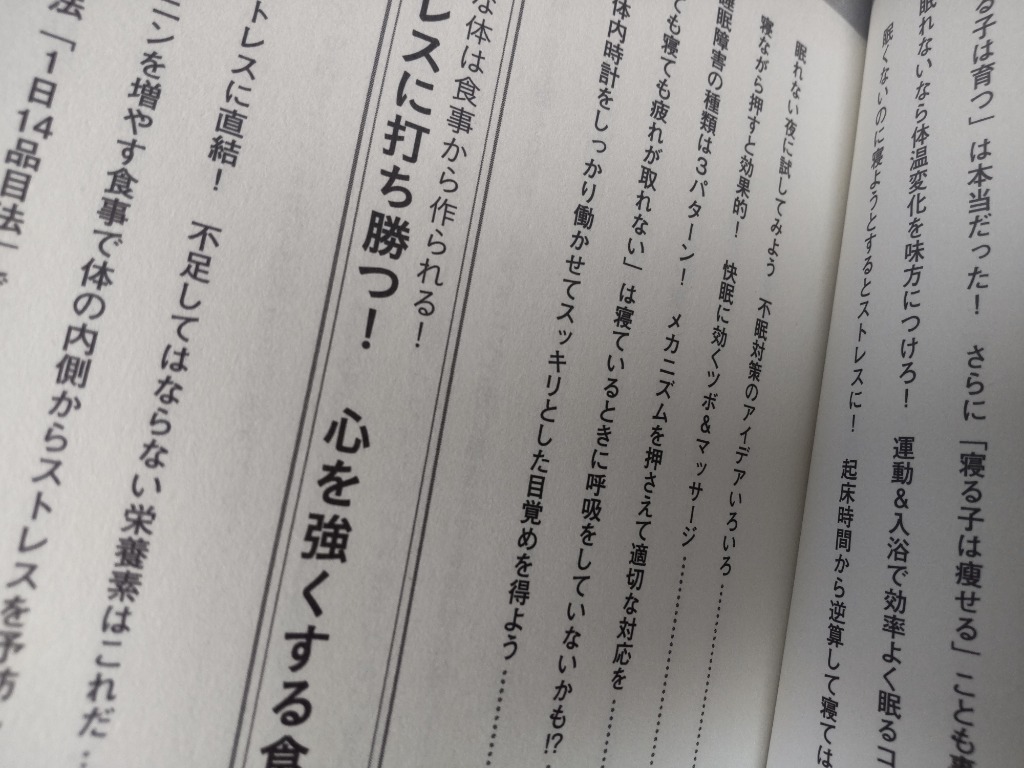 る子は育つ」は本当だった！　さらに「寝る子は痩せる」ことも
眠れないなら体温変化を味方につけろ！　運動&入浴で効率よく眠る
眠くないのに寝ようとするとストレスに！　起床時間から逆算して寝ては
眠れない夜に試してみよう　不眠対策のアイデアいろいろ……………
寝ながら押すと効果的！　快眠に効くツボ&マッサージ……………
睡眠障害の種類は3パターン！　メカニズムを押さえて適切な対応を……
ても寝ても疲れが取れない」は寝ているときに呼吸をしていないかも!?
体内時計をしっかり働かせてスッキリとした目覚めを得よう…………
な体は食事から作られる！
レスに打ち勝つ！　心を強くする食
トレスに直結！　不足してはならない栄養素はこれだ…
ニンを増やす食事で体の内側からストレスを予防…
法「1日14品目法」で